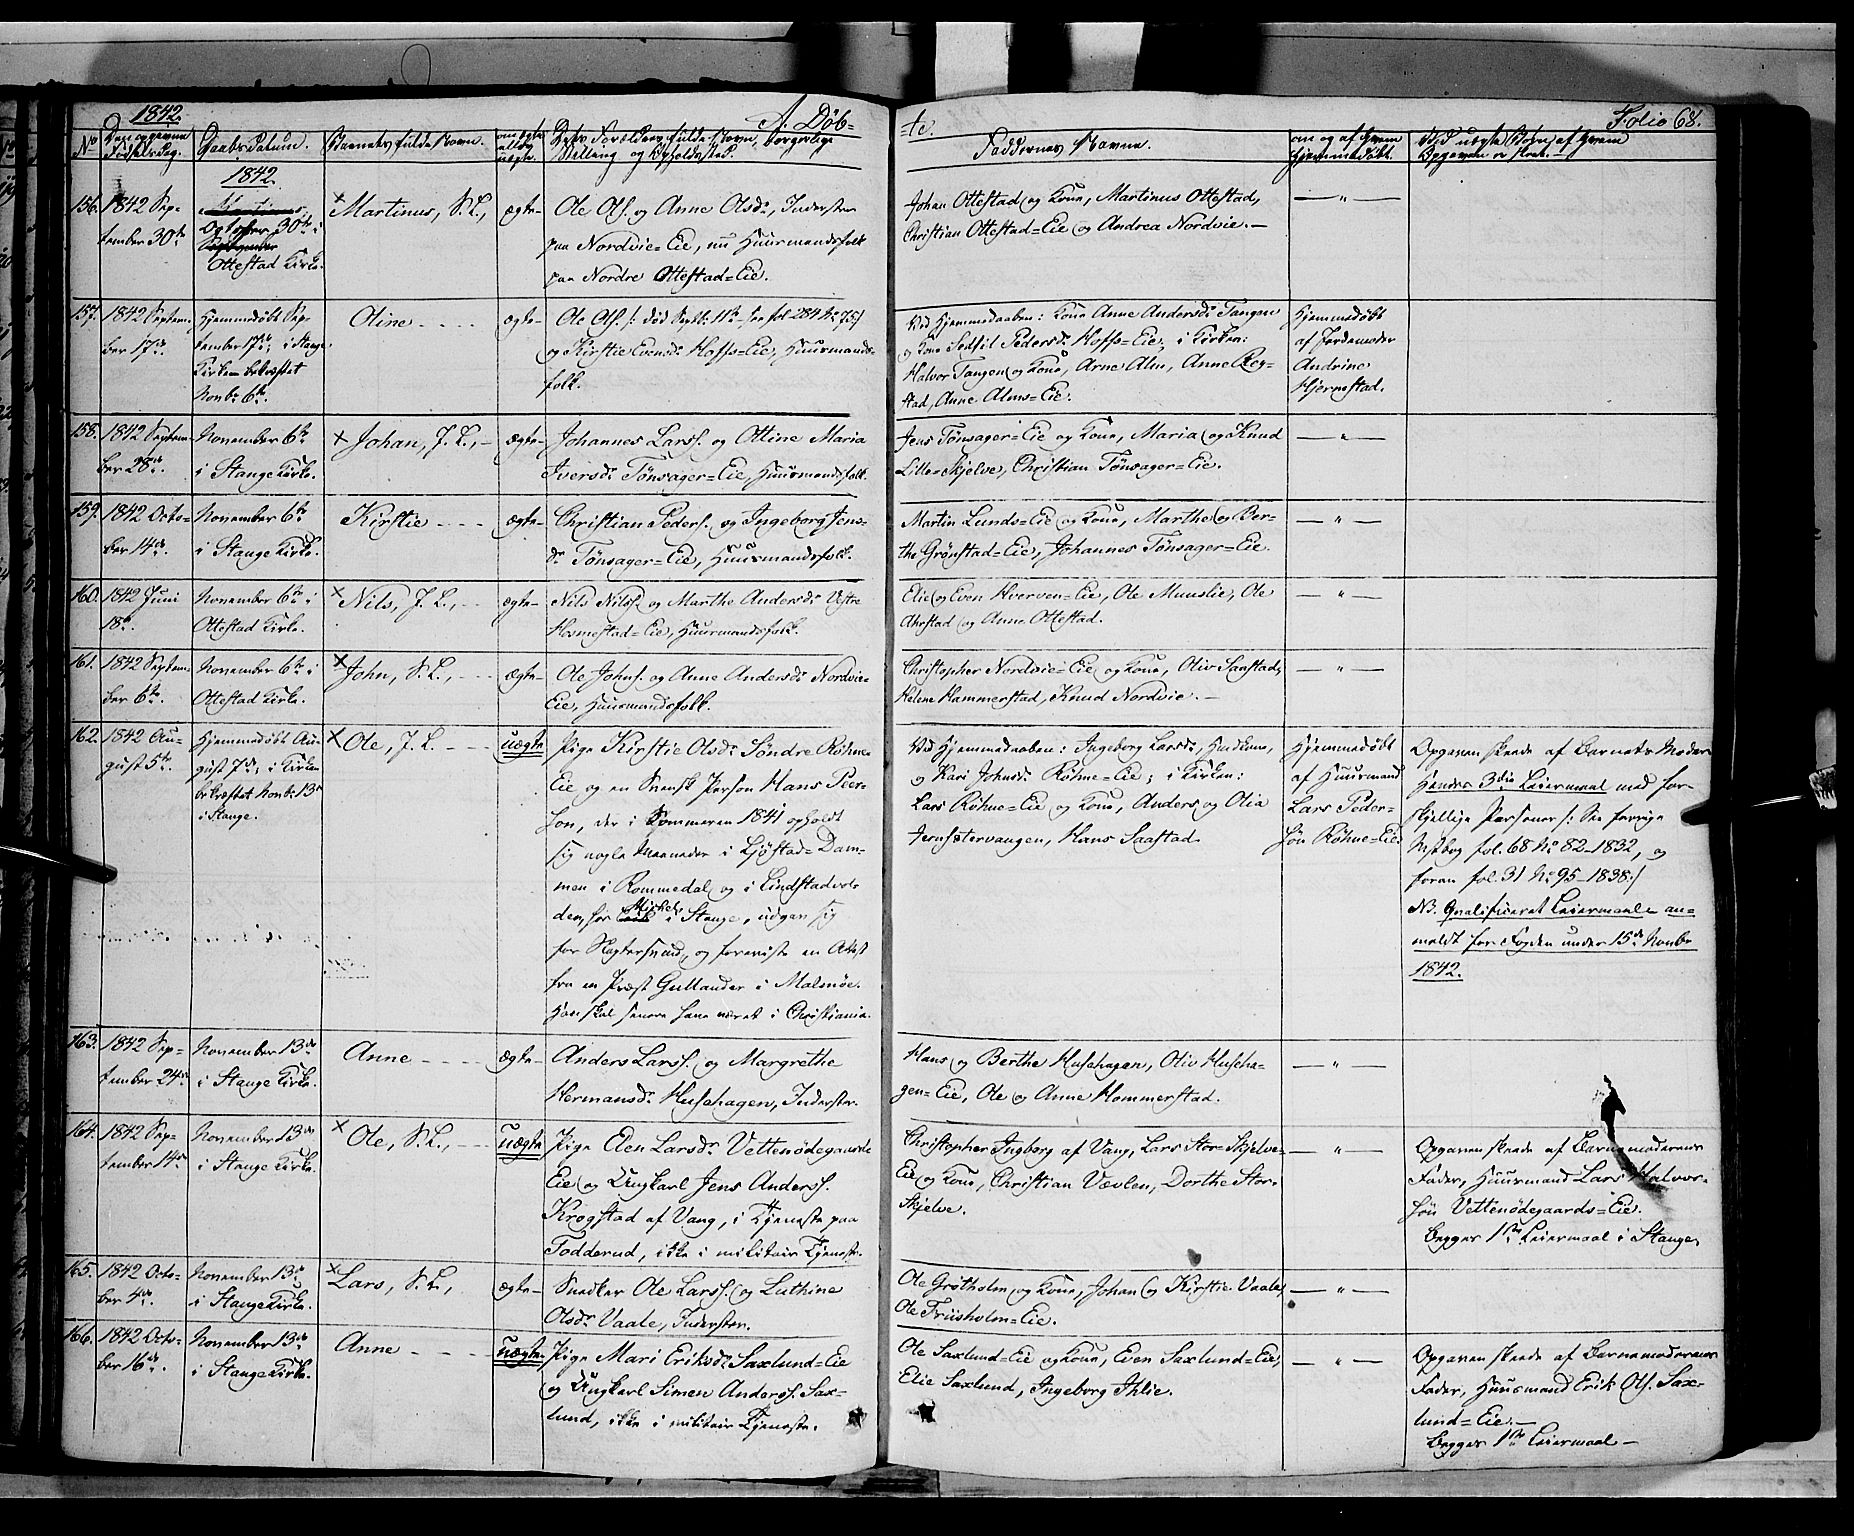 1842.
A. Døb-
-te.
Folio 68.
No
Den opgivne
Fødselsdag.
Daabs Datum.
Barnets fulde Navn.
om ægte
eller
uægte.
Dets Forældres fulde Navn, borgerlige
Stilling og Opholdssted.
Faddernes Navne.
om og af hvem
hjemmedøbt.
Ved uægte Børn, af hvem
Opgaven er skeet.
1842.
156.
1842 Sep-
tember 30te
October 30te i
Ottestad Kirke.
× Martinus, S. L.,
ægte-
Ole Ols. og Anne Olsdr, Inderster
paa Nordvie-Eie, nu Huusmandsfolk
paa Nordre Ottestad-Eie.
Johan Ottestad og Kone, Martinus Ottestad,
Christian Ottestad-Eie og Andrea Nordvie. -
— " —
157.
1842 Septem-
ber 17de.
Hjemmedøbt Sep-
tember 17de, i Stange
Kirken bekræftet
Novbr 6te.
Oline - - - -
ægte-
Ole Ols. /: død Septb: 11te see fol 284 No 75:/
og Kirstie Evensdr Hoffs-Eie, Huusmands-
folk.
Ved Hjemmedaaben: Kone Anne Andersdr Tangen
og Kone Sedsil Pedersdr Hoffs-Eie; i Kirken:
Halvor Tangen og Kone, Arne Alm, Anne Reg-
stad, Anne Alms-Eie.
Hjemmedøbt
af Jordemoder
Andrine
Hjernestad.
158.
1842 Septem-
ber 28de.
November 6te
i Stange Kirke.
× Johan, J. L., -
ægte-
Johannes Larss. og Oline Maria
Iversdr Tønsager-Eie, Huusmandsfolk.
Jens Tønsager-Eie og Kone, Maria og Knud
Lille-Skjelve, Christian Tønsager-Eie.
— " —
159.
1842 Octo-
ber 14de.
November 6te
i Stange Kirke.
Kirstie - - - -
ægte-
Christian Peders. og Ingeborg Jens-
dr Tønsager-Eie, Huusmandsfolk.
Martin Lunds-Eie og Kone, Marthe og Ber-
the Grønstad-Eie, Johannes Tønsager-Eie.
— " —
160.
1842 Juni
18de.
November 6te i
Ottestad Kirke.
× Nils, J. L., - -
ægte-
Nils Nilss. og Marthe Andersdr Vestre
Hosmestad-Eie, Huusmandsfolk.
Elie og Even Hverven-Eie, Ole Muuslie, Ole
Ahrstad og Anne Ottestad.
— " —
161.
1842 Septem-
ber 6te.
November 6te i
Ottestad Kirke.
× John, S. L., - -
ægte-
Ole Johns. og Anne Andersdr Nordvie-
Eie, Huusmandsfolk.
Christopher Nordvie-Eie og Kone, Oliv Saastad,
Helene Hammerstad, Knud Nordvie. -
— " —
162.
1842 Au-
gust 5te.
Hjemmedøbt Au-
gust 7de; i Kirken
bekræftet Novb: 13de
i Stange.
× Ole, J. L. - - -
uægte
Pige Kirstie Olsdr Søndre Røhne-
Eie og en Svensk Person Hans Peer-
son, der i Sommeren 1841 opholdt
sig nogle Maaneder i Ljøstad-Dam-
men i Rommedal og i Lindstadvol-
den, for Michel i Stange, udgav sig
for Røgtersvend, og foreviste en Attest
fra en Præst Gullander i Malmøe.
Han skal senere have været i Christiania.
Ved Hjemmedaaben: Ingeborg Larsdr, Huuskone,
og Kari Johnsdr Røhne-Eie; i Kirken:
Lars Røhne-Eie og Kone, Anders og Olia
Jernsetervangen, Hans Saastad.
Hjemmedøbt
af Huusmand
Lars Peder-
søn Røhne-Eie.
Opgaven skeede af Barnets Moder
Hendes 3die Leiermaal med for-
skjellige Personer /: See forrige
Mstbog fol. 68 No 82-1832, og
foran fol. 31 No 95-1838:/
NB. Qvalificeret Leiermaal an-
meldt for Fogden under 15de Novbr
1842.
163.
1842 Sep-
tember 24de
November 13de
i Stange Kirke.
Anne - - - -
ægte-
Anders Larss. og Margrethe
Hermansdr Husehagen, Inderster.
Hans og Berthe Husehagen, Oliv Huseha-
gen-Eie, Ole og Anne Hommerstad.
— " —
164.
1842 Sep-
tember 14de
November 13de
i Stange Kirke.
× Ole, S. L., - -
uægte
Pige Elen Larsdr Vettenødegaards
Eie og Ungkarl Jens Anderss.
Krogstad af Vang, i Tjeneste paa
Todderud, ikke i militair Tjeneste.
Christopher Ingberg af Vang, Lars Store-Skjelve-
Eie og Kone, Christian Vævlen, Dorthe Stor-
Skjelve.
— " —
Opgaven skeede af Barnemoderens
Fader, Huusmand Lars Halvor-
søn Vettenødegaards-Eie.
Begges 1ste Leiermaal i Stange.
165.
1842 Octo-
ber 4de.
November 13de
i Stange Kirke.
× Lars, S. L.,
ægte-
Snedker Ole Larss. og Luthine
Olsdr Vaale, Inderster.
Ole Grøtholm og Kone, Johan og Kirstie Vaale,
Ole Friisholm-Eie.
— " —
166.
1842 Octo-
ber 16de.
November 13de
i Stange Kirke.
Anne - - - -
uægte
Pige Mari Eriksdr Saxlund-Eie
og Ungkarl Simen Anderss. Sax-
lund, ikke i militair Tjeneste.
Ole Saxlund-Eie og Kone, Even Saxlund-Eie,
Elie Saxlund, Ingeborg Ihlie.
— " —
Opgaven skeede af Barnemoderens
Fader, Huusmand Erik Ols. Sax-
lund-Eie. -
Begges 1ste Leiermaal -